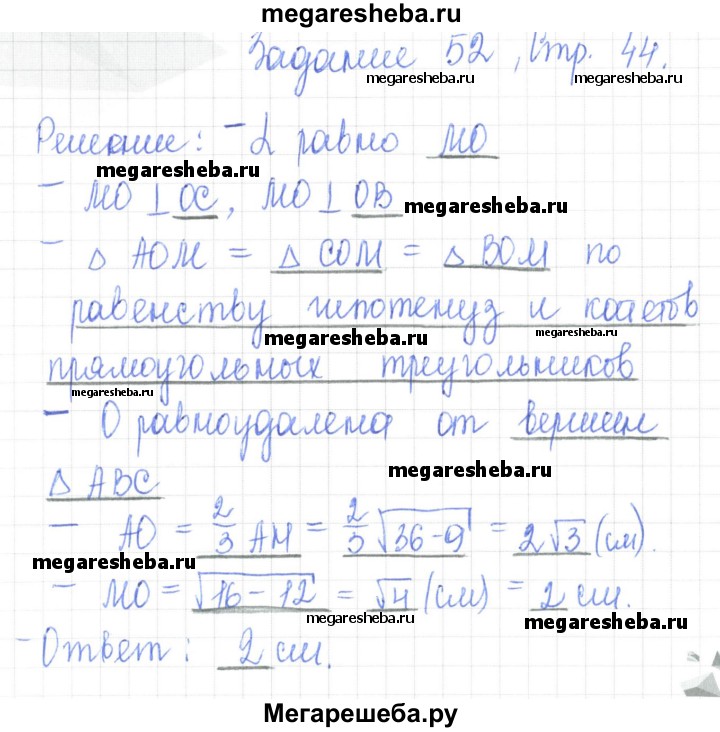 megaresheba.ru
Задание 52, Стр. 44.
megaresheba.ru megaresheba.ru
Решение: - α равно МО
megaresheba.ru
- МО ⊥ ОС, МО ⊥ ОВ megaresheba.ru
- △ АОМ = △ СОМ = △ ВОМ по
равенству гипотенуз и катетов
megaresheba.ru megaresheba.ru
прямоугольных треугольников
megaresheba.ru
- О равноудалена от вершин
megaresheba.ru
△ АВС
- АО = 2/3 АМ = 2/3 √36-9 = 2√3 (см).
megaresheba.ru
- МО = √16-12 = √4 (см) = 2 см.
megaresheba.ru megaresheba.ru
- Ответ: 2 см.
Мегарешеба.ру